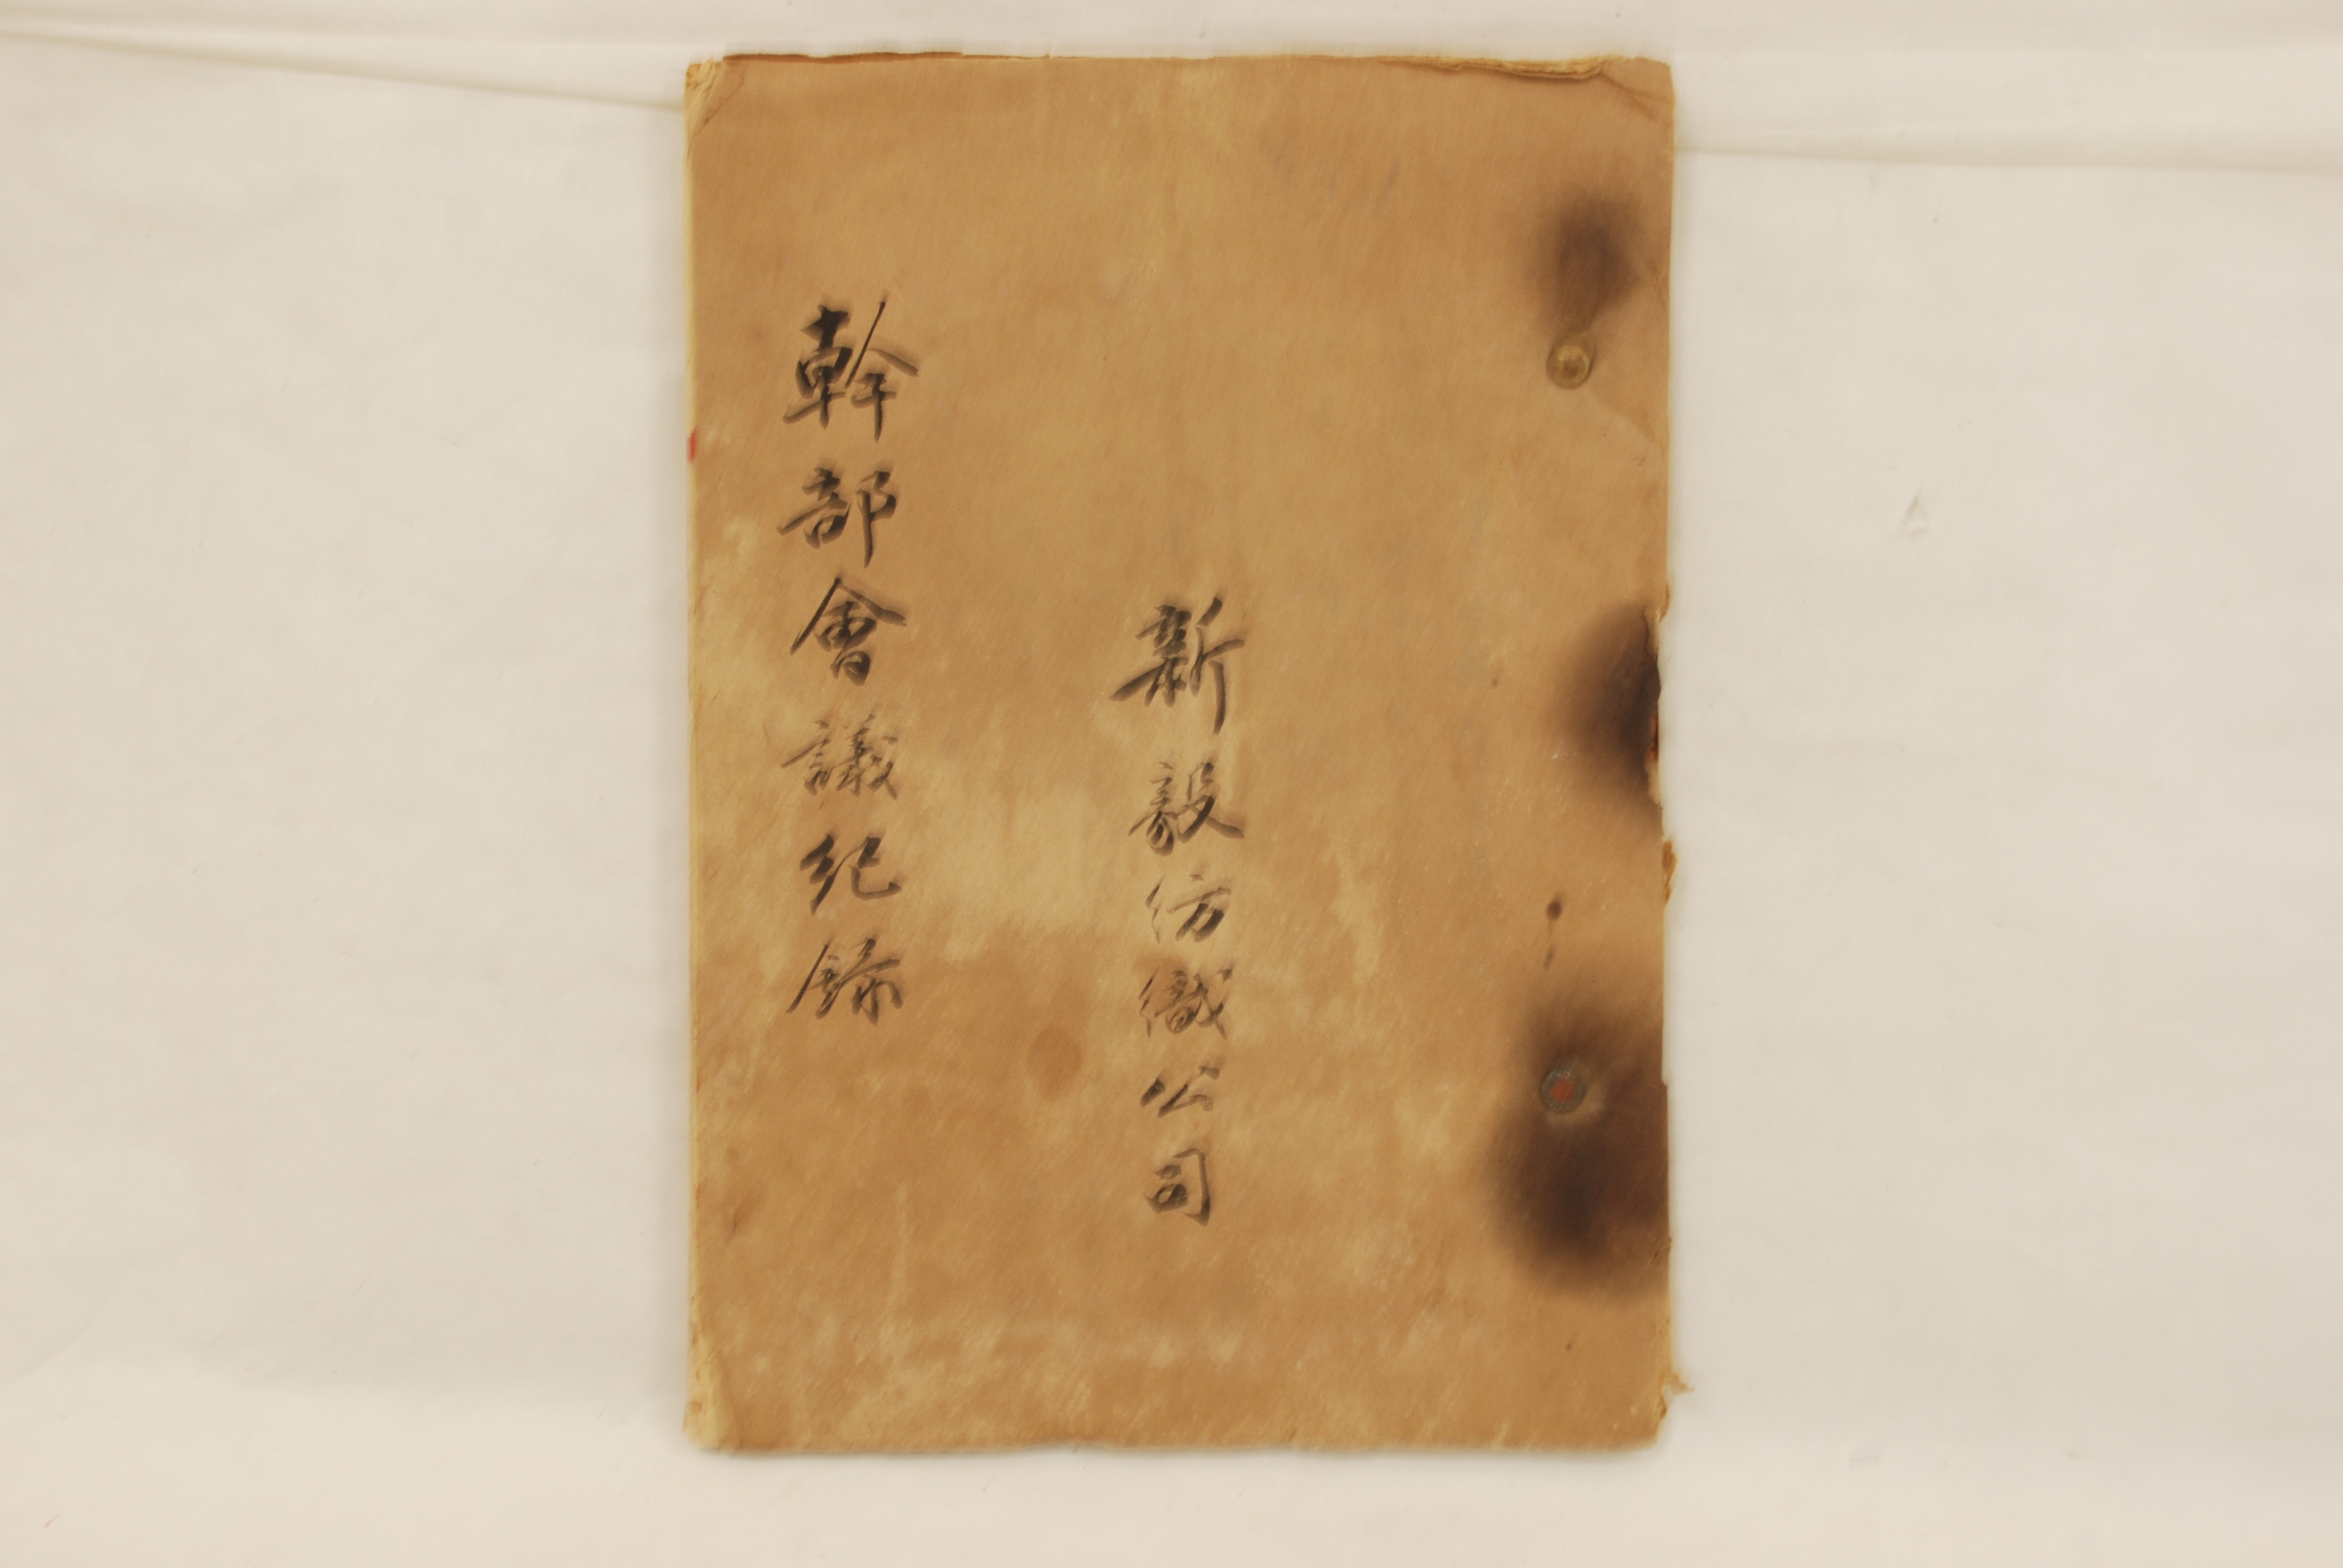 新毅紡織公司
幹部會議紀錄